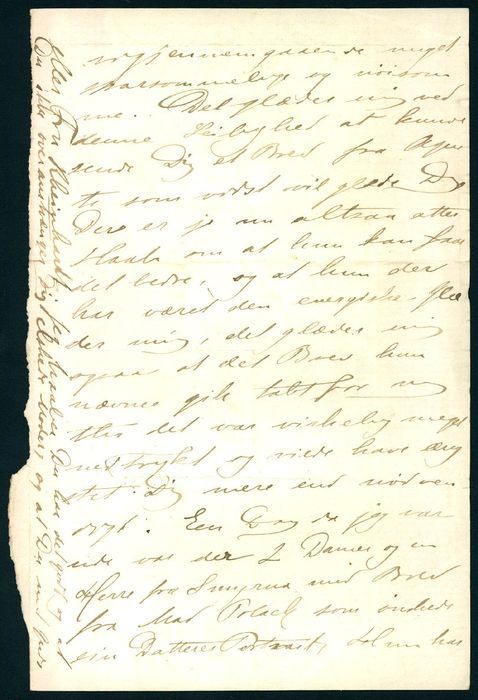 og gjennemgaaende meget
sparsommelige og nøisom
me. Det glæder mig ved
denne Leilighed at kunde
sende Dig et Brev fra
te som vidst vil glæde Dig
Der er jo nu altsaa atter
Haab om at hun kan faae
det bedre, og at hun der
har været den energiske, glæ
der mig, det glæder mig
ogsaa at det Brev hun
nævner gik tabt for mig
thi det var virkelig meget
nedtrykt og vilde have æng
stet Dig mere end nødven
digt. Een Dag da jeg var
ude var der 2 Damer og en
Herre fra Smyrna med Brev
fra Mad Polack som ønskede
sin Datters Portrait, Hun har
eller fra Rheinhardt, jeg haaber Du har det godt og at
Du ikke overanstrænger Dig elskede Moder, og at Du med